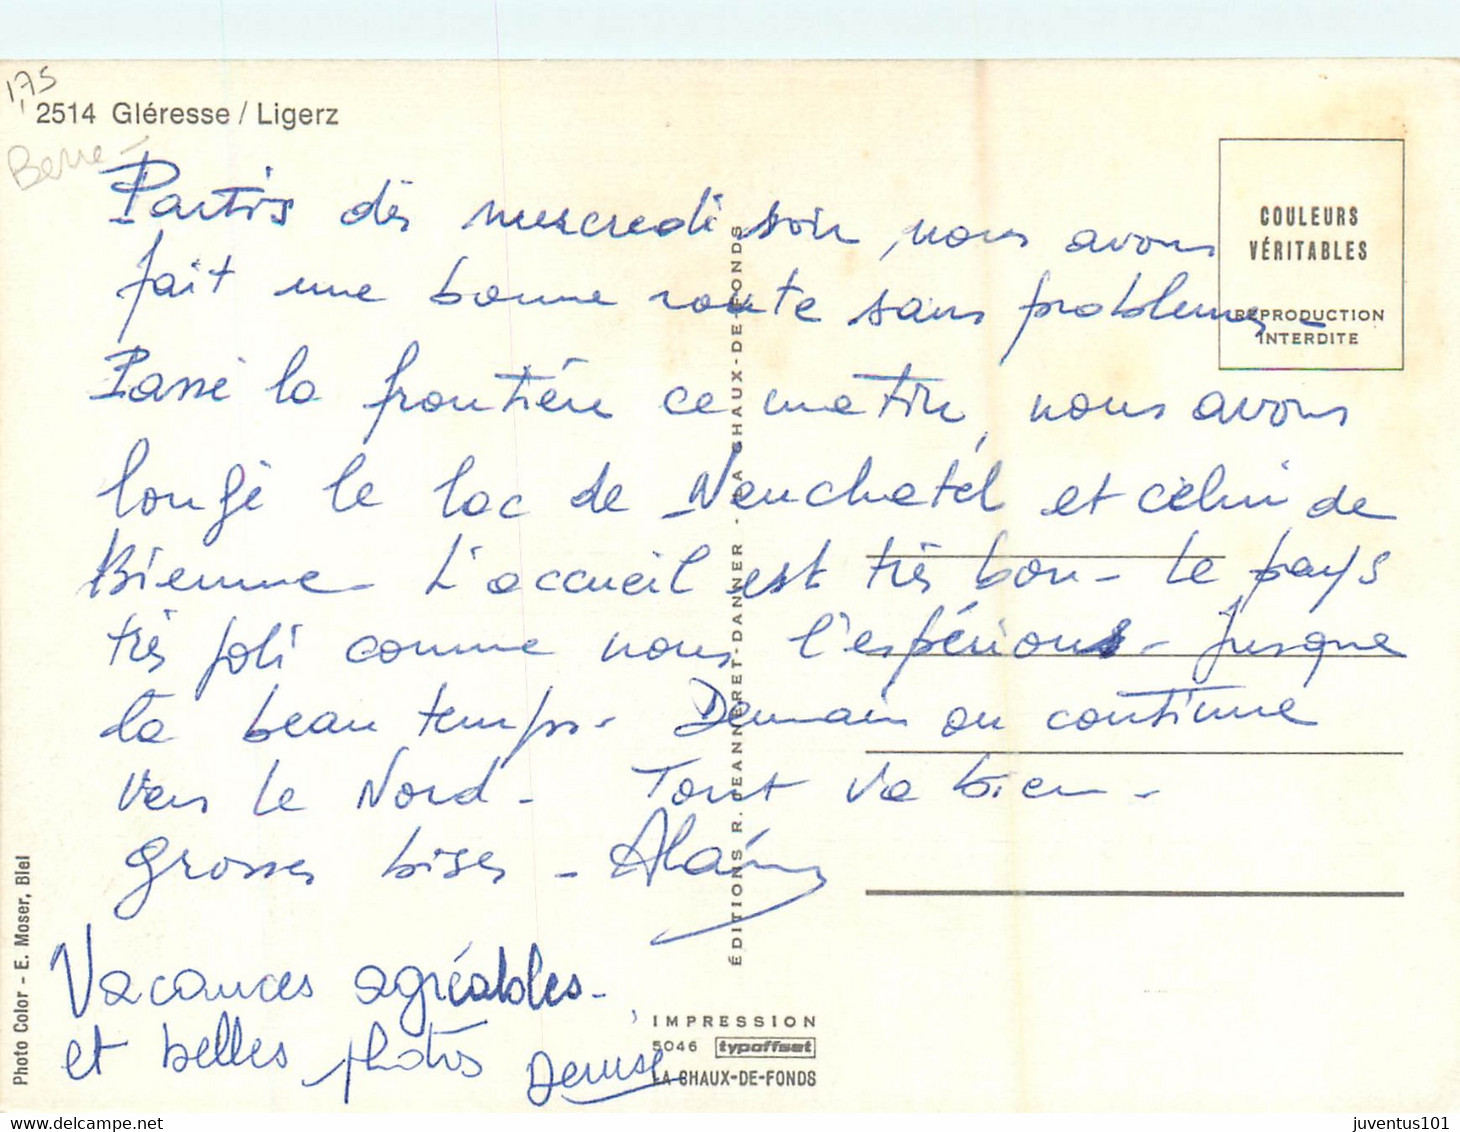 1,75
2514 Gléresse / Ligerz
Berne
Partis dès mercredi soir, nous avons
fait une bonne route sans problèmes -
Passé la frontière ce matin, nous avons
longé le lac de Neuchatel et celui de
Bienne - L'accueil est très bon - Le pays
très joli comme nous l'espérions - Jusque
là beau temps - Demain on continue
vers le Nord - Tout va bien -
Grosses bises - Alain
Vacances agréables -
et belles photos Denise
COULEURS
VÉRITABLES
REPRODUCTION
INTERDITE
ÉDITIONS R. JEANNERET-DANNER - LA CHAUX-DE-FONDS
Photo Color - E. Moser, Biel
IMPRESSION
5046 typoffset
LA CHAUX-DE-FONDS
delcampe.net
juventus101